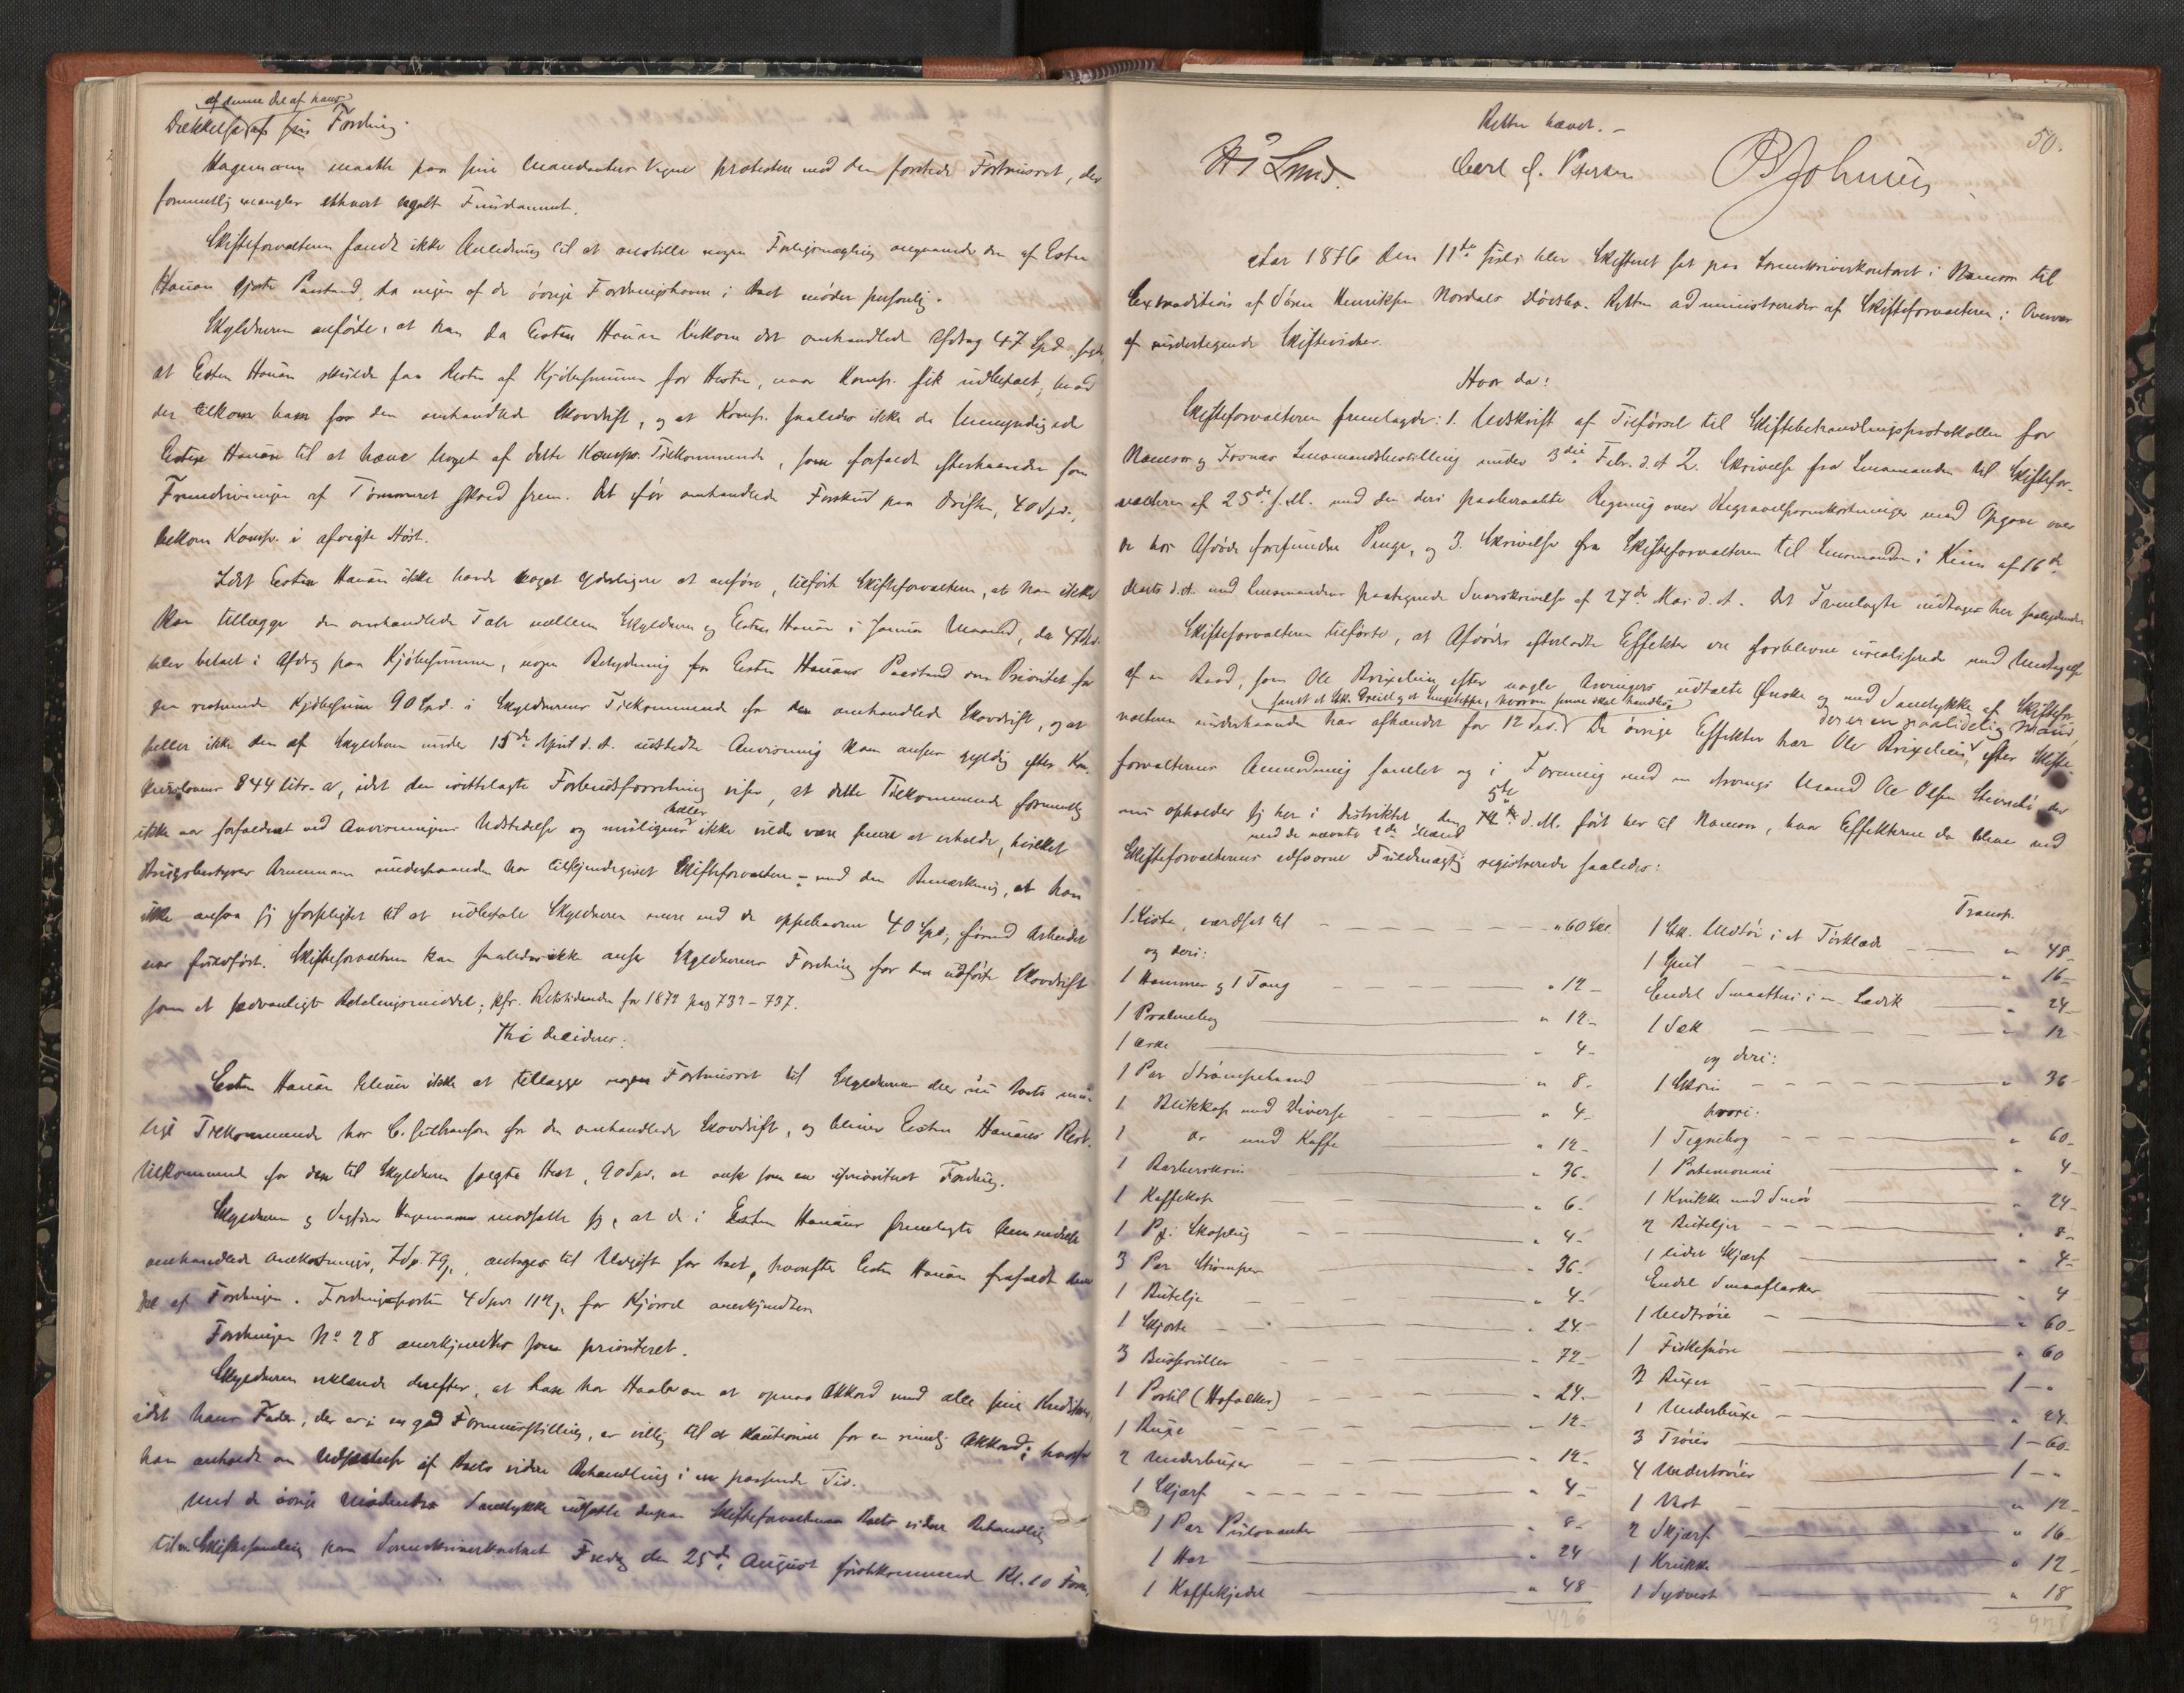 af denne Del af hans
Dækkelse af sin Fordring.
Hagemann maatte paa sine Mandanters Vegne protestere mod den fordrede Fortrinsret, der
formentlig mangler ethvert legalt Fundament.
Skifteforvalteren fandt ikke Anledning til at anstille nogen Forligsmægling angaaende den af Esten
Hanan gjorte Paastand, da ingen af de øvrige Fordringshavere i Boet møder personlig.
Skyldneren anførte, at han da Esten Hanan bekom det omhandlede Afdrag 47 Spd. sagde,
at Esten Hanan skulde faa Resten af Kjøbesummen for Hesten, naar Komp. fik udbetalt, hvad
der tilkom ham for den omhandlede Skovdrift, og at Komp. saaledes ikke
Esten Hanan til at hæve Noget af dette Komps. Tilkommende, som forfaldt efterhaanden som
Fremdrivningen af Tømmeret skred frem. Det før omhandlede Forskud paa Driften, 40 Spd.,
bekom Komp. i afvigte Høst.
Idet Esten Hanan ikke havde Noget yderligere at anføre, tilførte Skifteforvalteren, at han ikke
kan tillægge den omhandlede Tale mellem Skyldneren og Esten Hanan i Januar Maaned, da 47 Spd.
blev betalt i Afdrag paa Kjøbesummen, nogen Betydning for Esten Hanans Paastand om Prioritet for
sin resterende Kjøbesum 90 Spd. i Skyldnerens Tilkommende for den omhandlede Skovdrift, og at
heller ikke den af Skyldneren under 15de April d. A. udstedte Anvisning kan ansees gyldig efter Kon-
kurslovens § 44 Litr. a, idet den irettelagte Forbudsforretning viser, at dette Tilkommende formentlig
heller
ikke var forfaldent ved Anvisningens Udstedelse og muligens ikke vilde være senere at erholde, hvilket
Brugsbestyrer underhaanden har tilkjendegivet Skifteforvalteren - med den Bemærkning, at han
ikke ansaa sig forpligtet til at udbetale Skyldneren mere end de oppebaarne 40 Spd., førend Arbeidet
var fuldført. Skifteforvalteren kan saaledes ikke anse Skyldnerens Fordring for den udførte Skovdrift
som et sædvanligt Betalingsmiddel; kfr. Retstidende for 1872 pag 732 - 737.
Thi decideres:
Esten Hanan bliver ikke at tillægge nogen Fortrinsret til Skyldnerens eller nu Boets mu-
lige Tilkommende hos C. Gulbranson for den omhandlede Skovdrift, og bliver Esten Hanans Rest-
tilkommende for den til Skyldneren solgte Hest, 90 Spd. at anse som en uprioriteret Fordring.
Skyldneren og Sagfører Hagemann modsatte sig, at de i Esten Hanans fremlagte Anmeldelse
omhandlede Omkostninger, 7 Sp. 79, antages til Udgift for Boet, hvorefter Esten Hanan frafaldt denne
Del af Fordringen. Fordringsposten 4 Spd 112, for Kjørsel anerkjendtes.
Fordringen No 28 anerkjendtes som prioriteret.
Skyldneren erklærede derefter, at han har Haab om at opnaa Akkord med alle sine Kreditorer,
idet hans Fader, der er i en god Formuesstilling, er villig til at kautionere for en rimelig Akkord; hvorfor
han anholdt om Udsættelse af Boets videre Behandling i en passende Tid.
Med de øvrige Mødendes Samtykke udsatte derpaa Skifteforvalteren Boets videre Behandling
til en Skiftesamling paa Sorenskriverkontoret Fredag den 25de August førstkommende Kl. 10 Form.
50.
Retten hævet. -
Lund. Carl J. Petersen B Johnsen
Aar 1876 den 11te Juli blev Skifteret sat paa Sorenskriverkontoret i Namsos til
Extradition af Søren Henriksen Nordals Dødsbo. Retten administreredes af Skifteforvalteren i Overvær
af undertegnede Skiftevidner.
Hvor da:
Skifteforvalteren fremlagde: 1. Udskrift af Tilførsel til Skiftebehandlingsprotokollen for
Namsos og Fosnæs Lensmandsbestilling under 3die Febr. d. A. 2. Skrivelse fra Lensmanden til Skiftefor-
valteren af 25de s. M. med den deri paaberaabte Regning over Begravelsesomkostninger med Opgave over
de hos Afdøde forefundne Penge, og 3. Skrivelse fra Skifteforvalteren til Lensmanden i Kinn af 16de
Marts d. A. med Lensmandens paategnede Svarskrivelse af 27de Mai d. A. Det Fremlagte indtages her saalydende
Skifteforvalteren tilførte, at Afdødes efterladte Effekter ere forblevne urealiserede med Undtagelse
af en Baad, som Ole Brixelius efter nogle Arvingers udtalte Ønske og med Samtykke af Skiftefor-
samt et Stk. Dreiel og et Langtouge, hvorom senere skal handles
valteren underhaanden har afhændet for 12 Spd. De øvrige Effekter har Ole Brixelius, der er en paalidelig Mand, efter Skifte-
forvalterens Anmodning samlet og i Forening med en Arvings Mand Ole Olsen der
5te
nu opholder sig her i Distriktet, den 12te d. M. ført her til Namsos, hvor Effekterne da bleve ved
med de nævnte 2de Mænd
Skifteforvalterens edsvorne Fuldmægtig registrerede saaledes:
1 Kiste, værdsat til - " 60 Skl.
og deri:
1 Hammer og 1 Tang - " 12 -
1 Psalmebog " 12 -
1 Æske " 4 -
1 Par Strømpebaand " 8 -
1 Blikkop med Diverse " 4 -
1 do med Kaffe " 12 -
1 Barberskrin " 36 -
1 Kaffekop " 6 -
1 " 4 -
3 Par Strømper " 36 -
1 Butelje " 4 -
1 Skjorte " 24 -
3 Busseruller " 72 -
1 Portel (Hofælker) " 24 -
1 Buxe " 12 -
2 Underbuxer " 12 -
1 Skjærf " 4 -
1 Par Pulsvanter " 8 -
1 Hat " 24
1 Kaffekjedel " 48
426
Transp.
1 Stk. Uldtøi i et Tørklæde " 48 -
1 Speil " 16 -
Endel Smaatteri i en Lædik " 24 -
1 Sæk " 12
og deri:
1 Skrin " 36 -
hvori:
1 Tegnebog " 60 -
1 Portemonnie " 4 -
1 Krukke med Smør " 24 -
2 Buteljer " 8 -
1 lidet Skjærf " 4 -
Endel Smaaflasker " 4
1 Uldtrøie " 60 -
1 Fiskesnøre " 60
2 Buxer 1 - "
1 Underbuxe " 24 -
3 Trøier 1 - 60 -
4 Undertrøier 1 - "
1 Vest " 12 -
2 Skjærf " 16 -
1 Krukke " 12 -
1 Sydvest " 18
3 - 928